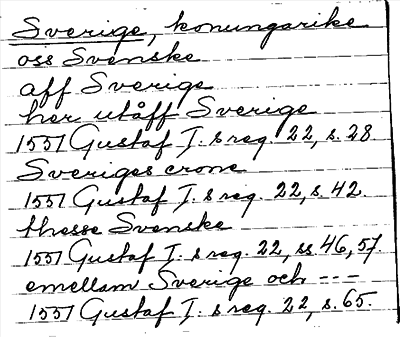 Sverige, konungarike
oss Svenske
aff Sverige
her utåff Sverige
1551 Gustaf I. s reg. 22, s. 28
Sveriges crone
1551 Gustaf I. s reg. 22, s. 42.
thesse Svenske
1551 Gustaf I. s reg. 22, ss 46, 57.
emellam Sverige och ---
1551 Gustaf I. s reg. 22, s. 65.